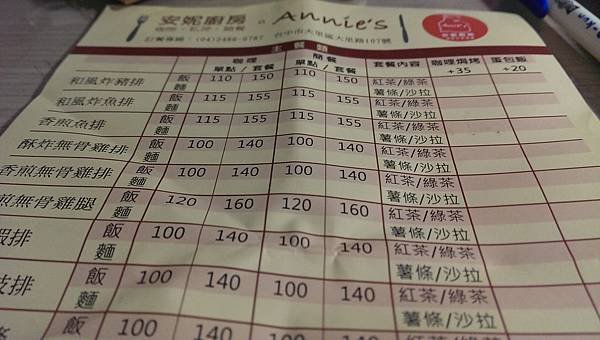 安妮廚房 a Annie's
咖啡‧私房‧簡餐
訂餐專線：(04)2486-0787 台中市大里區大里路107號
主餐類
咖哩 簡餐 套餐內容 咖哩焗烤 蛋包飯
單點/套餐 單點/套餐 +35 +20
和風炸豬排 飯 110 150 110 150 紅茶/綠茶
麵 薯條/沙拉
和風炸魚排 飯 115 155 115 155 紅茶/綠茶
麵 薯條/沙拉
香煎魚排 飯 115 155 115 155 紅茶/綠茶
麵 薯條/沙拉
酥炸無骨雞排 飯 100 140 100 140 紅茶/綠茶
麵 薯條/沙拉
香煎無骨雞排 飯 100 140 100 140 紅茶/綠茶
麵 薯條/沙拉
煎無骨雞腿 飯 120 160 120 160 紅茶/綠茶
麵 薯條/沙拉
蝦排 飯 100 140 100 140 紅茶/綠茶
麵 薯條/沙拉
排 飯 100 140 100 140 紅茶/綠茶
麵 薯條/沙拉
飯 100 140 100 140 紅茶/綠茶